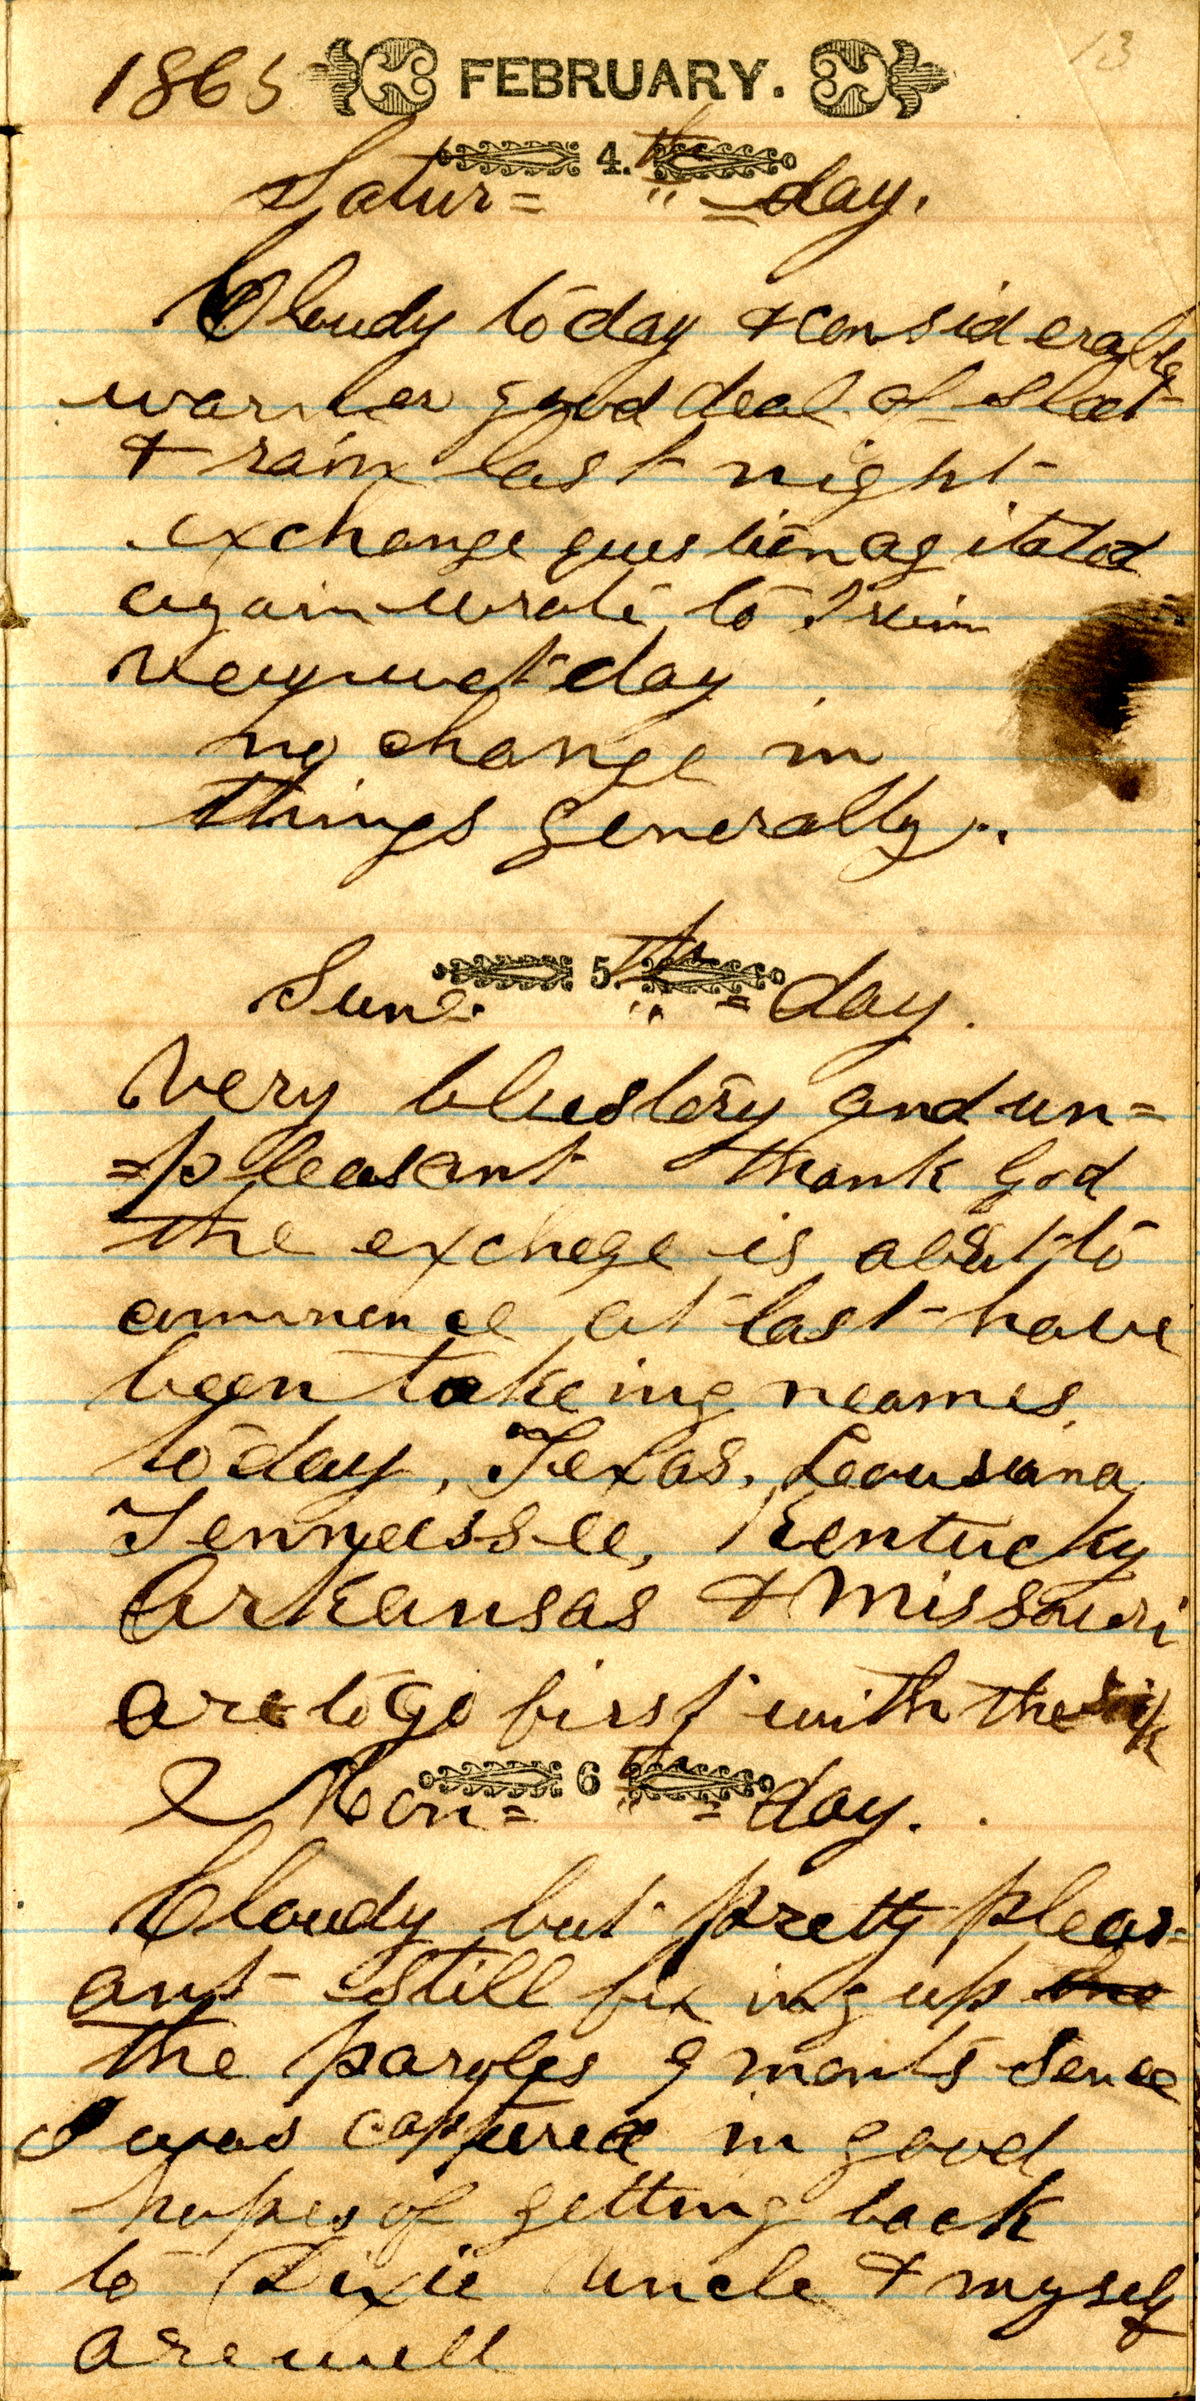 1865 FEBRUARY. 13
4.th
Satur= " =day.
Cloudy today & considerable
warmer good deal of sleet
& rain last night
exchange question agitated
again wrote to
Very wet day
no change in
things generally..
5.th
Sun=. " =day.
Very blustery and un=
=pleasant thank God
the exchege is about to
commence at last have
been takeing neames
today, Texas, Leousiana
Tennessee, Kentucky
Arkansas & Missouri
are to go first with the sick
6th
Mon= " =day.
Cloudy but pretty pleas=
ant still fixing up the
the paroles 9 months sence
I was captured in good
hopes of getting back
to Dixie Uncle & myself
are well